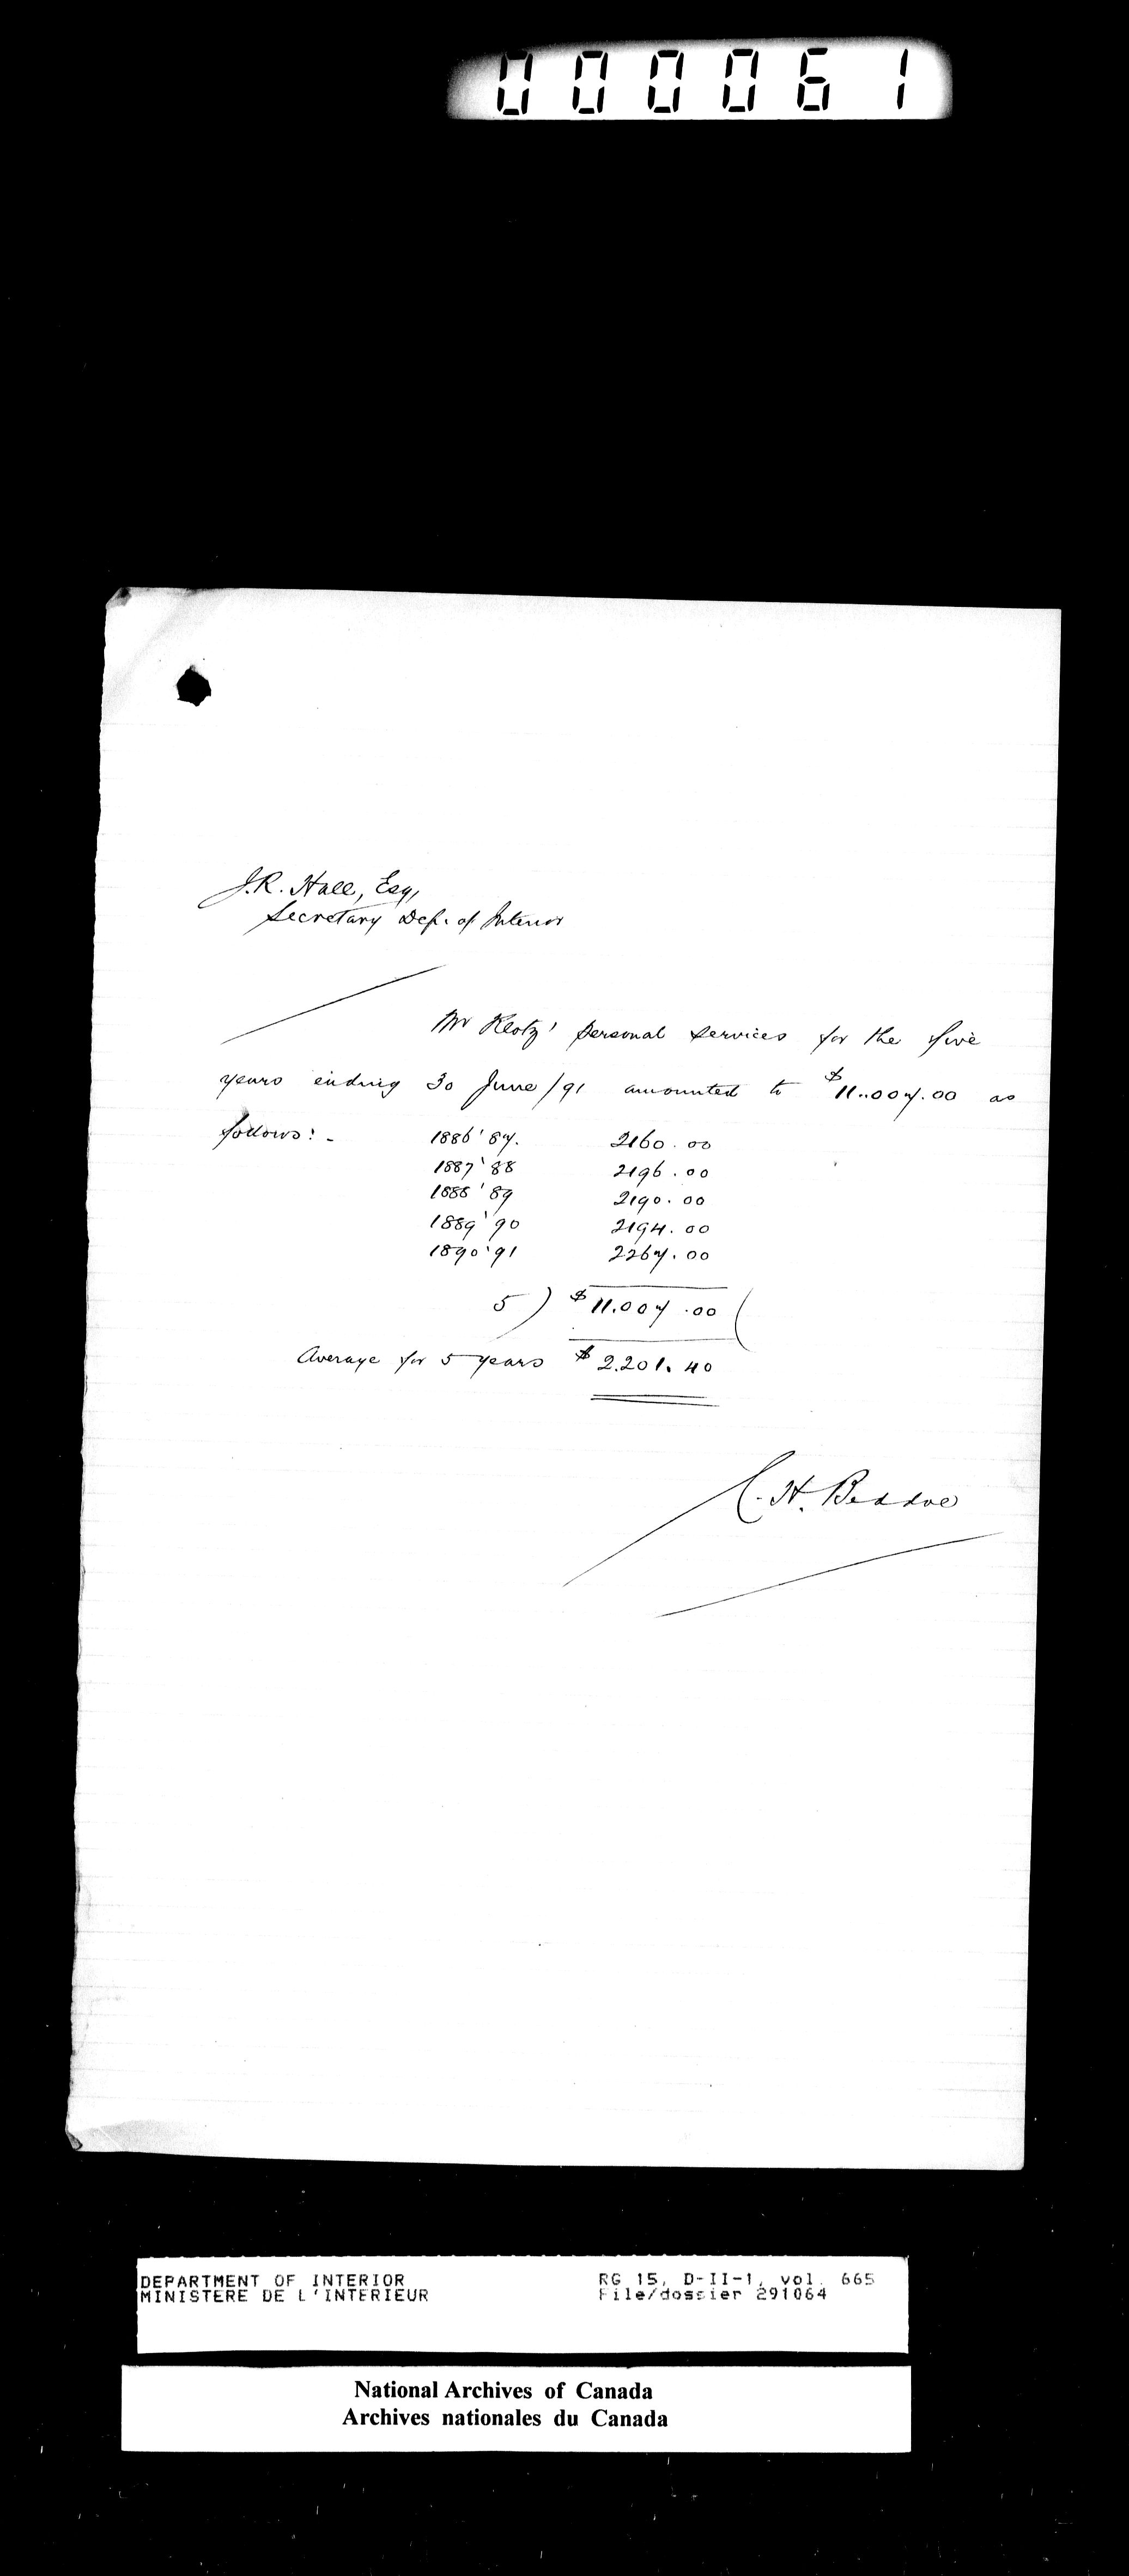 000061
J.R. Hall, Esq,
Secretary Dep. of Interior
Mr Klotz' personal services for the five
years ending 30 June/91 amounted to $11.007.00 as
follows:-
1886'87. 2160.00
1887'88 2196.00
1888'89 2190.00
1889'90 2194.00
1890'91 2267.00
5 ) $11.007.00 (
Average for 5 years $2.201.40
C. H. Beddoe
DEPARTMENT OF INTERIOR RG 15, D-II-1, vol. 665
MINISTERE DE L'INTERIEUR File/dossier 291064
National Archives of Canada
Archives nationales du Canada